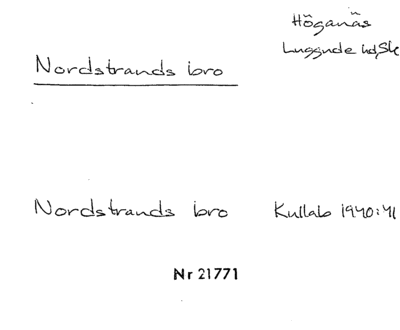 Höganäs
Luggude hd, Sk
Nordstrands bro
Nordstrands bro Kullab 1940:41
Nr 21771